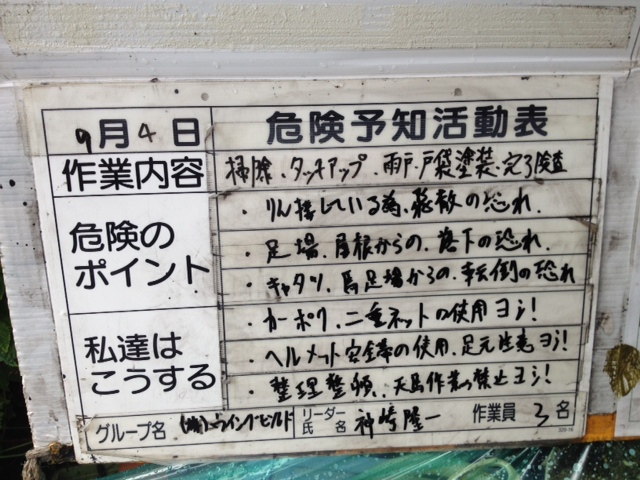 9月4日 危険予知活動表
作業内容 掃除、タッチアップ、雨戸、戸袋塗装、完了検査
危険のポイント
・りん接している為、飛散の恐れ、
・足場、屋根からの、落下の恐れ、
・キャタツ、馬足場からの、転倒の恐れ
私達はこうする
・カーポリ、二重ネットの使用ヨシ!
・ヘルメット安全帯の使用、足元注意ヨシ!
・整理整頓、天馬作業の禁止ヨシ!
グループ名 (株)ウイングビルド リーダー氏名 神崎隆一 作業員 3名